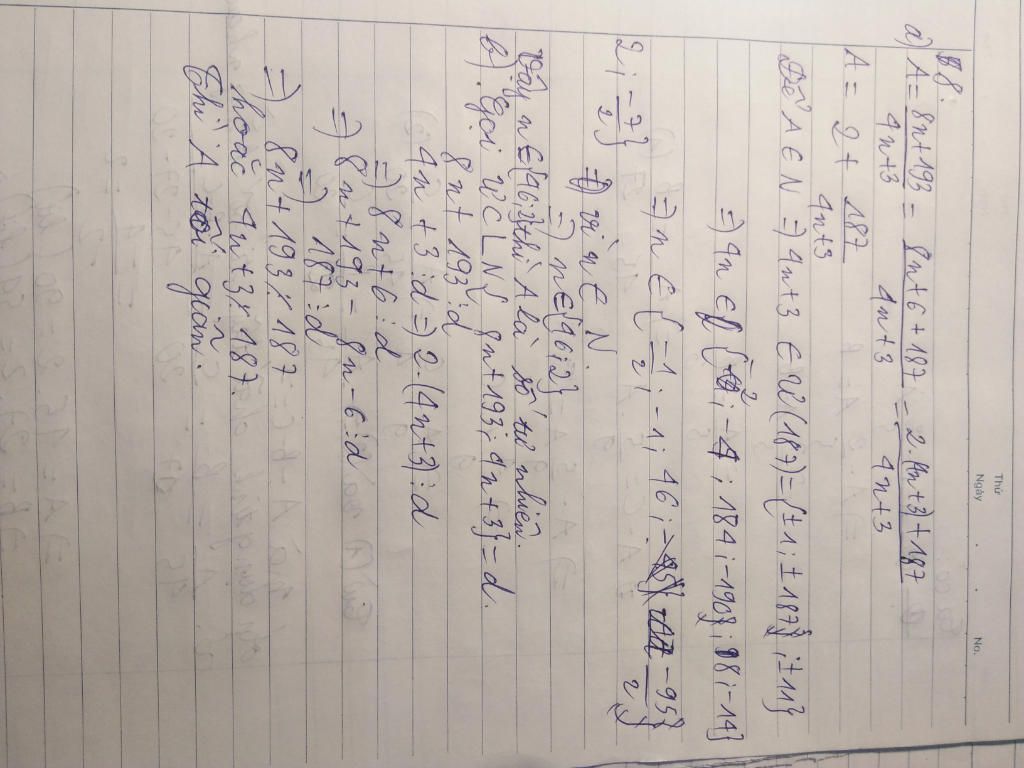 Thứ
Ngày
No.
B8:
a) A = 8n+193 / 4n+3 = 8n+6+187 / 4n+3 = 2.(4n+3)+187 / 4n+3
A = 2 + 187 / 4n+3
Để A ∈ N => 4n+3 ∈ Ư(187) = {±1; ±187}; ±11}
=> 4n ∈ {-2; -4; 184; -190}; 8; -14}
=> n ∈ { -1/2; -1; 46; -95/2}
2; -7/2}
vì n ∈ N.
=> n ∈ {46; 2}
Vậy n ∈ {46; 2} thì A là số tự nhiên.
b) Gọi ƯCLN { 8n+193; 4n+3} = d.
8n + 193 ⋮ d
4n + 3 ⋮ d => 2.(4n+3) ⋮ d
=> 8n+6 ⋮ d
=> 8n+193 - 8n-6 ⋮ d
=> 187 ⋮ d
=> 8n+193 ⋮̸ 187
hoặc 4n+3 ⋮̸ 187.
Thì A tối giản.